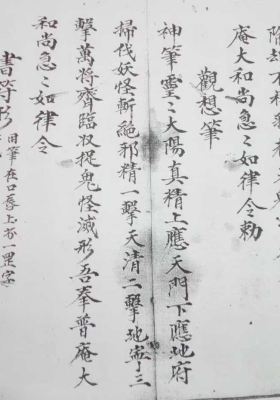 庵大和尚急々如律令敕
觀想筆
神筆靈々大陽真精上應天門下應地府
掃伐妖怪斬絕邪精一擊天清二擊地寧三
擊萬將齊臨収捉鬼怪滅形吾奉普庵大
和尚急々如律令
書符形用筆在口唇上亦一罡字